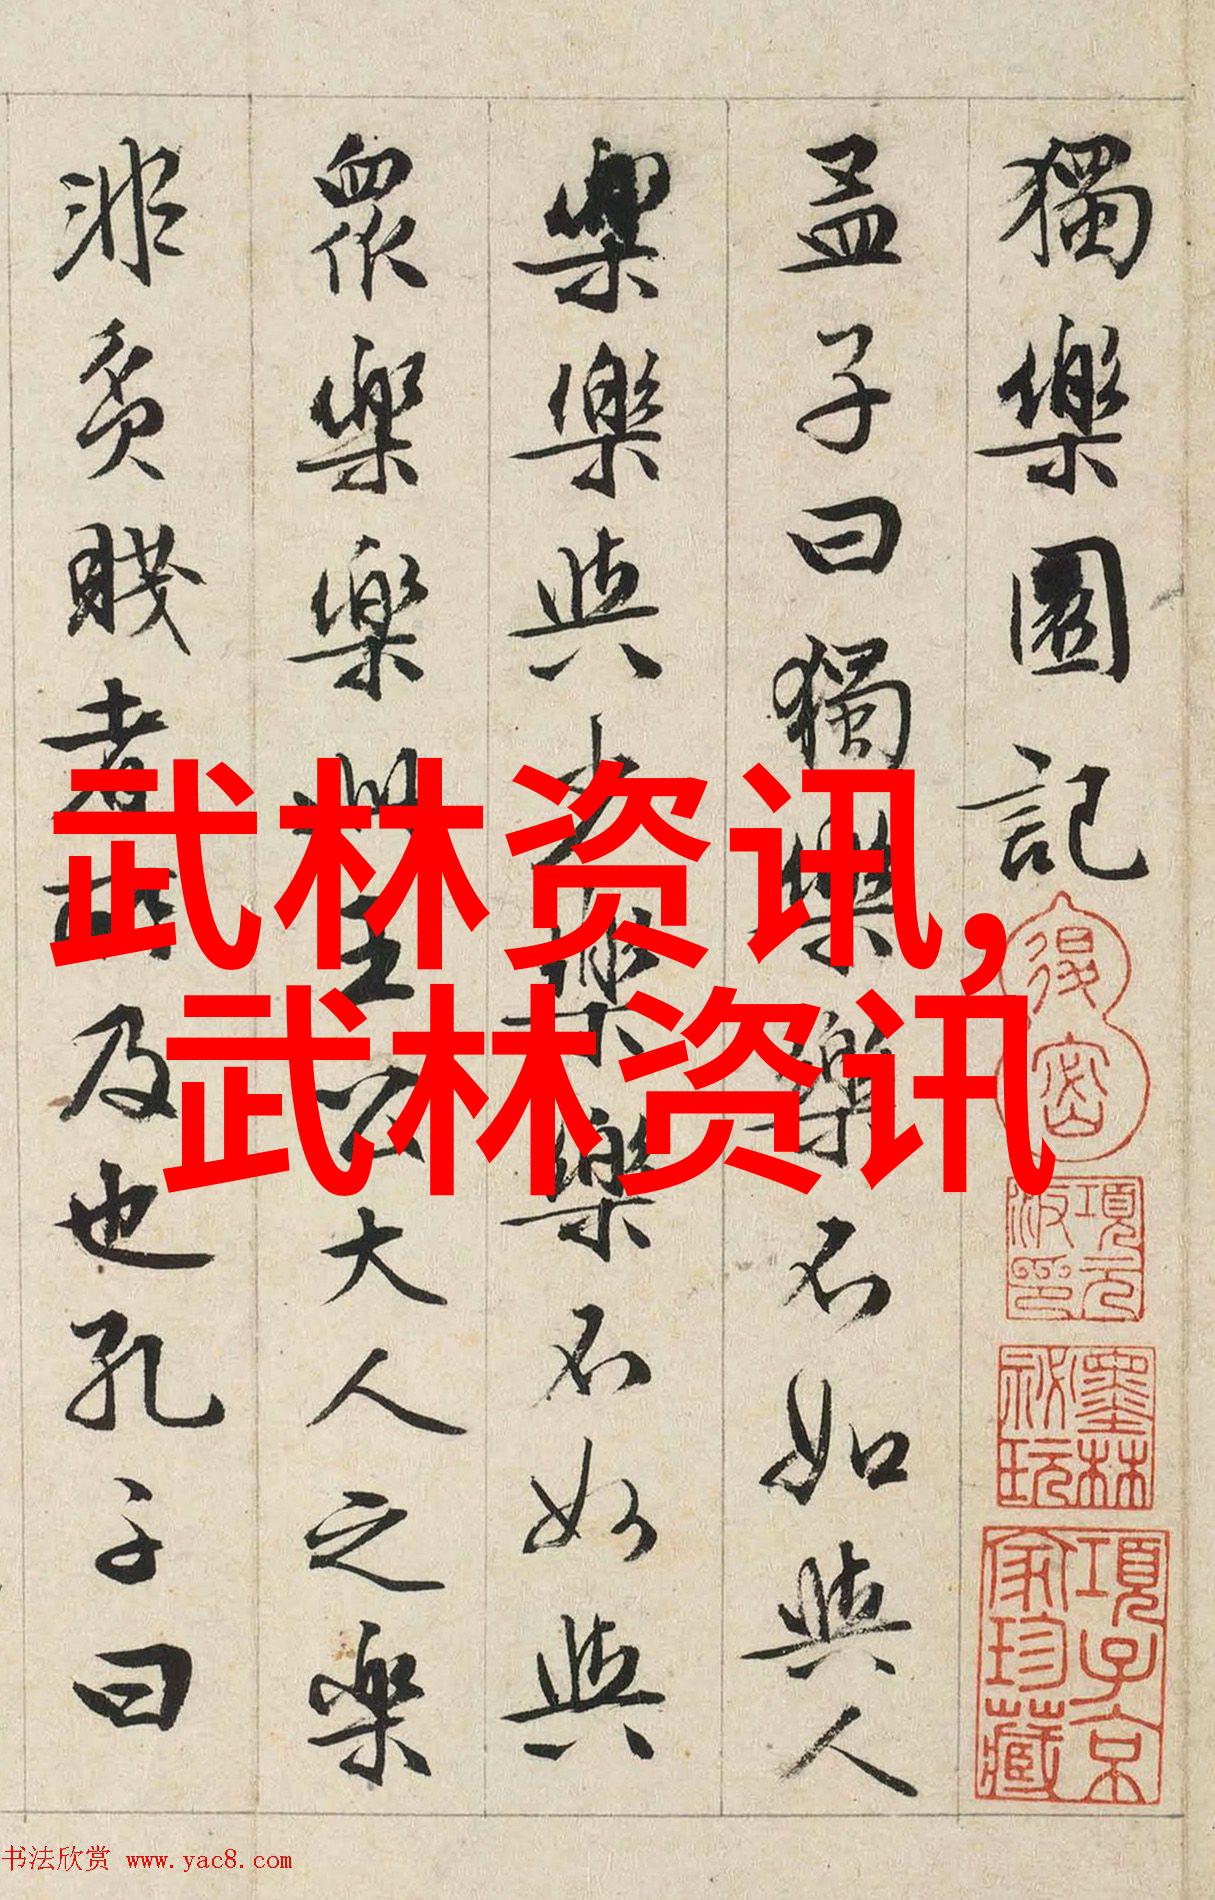 獨樂園記
孟子曰獨樂樂不如與人
樂樂與少樂樂不如與
眾樂樂此王公大人之樂
非貧賤者所及也孔子曰
項元汴印
墨林秘玩
項子京家珍藏
武林资讯,
武林资讯
书法欣赏 www.yac8.com